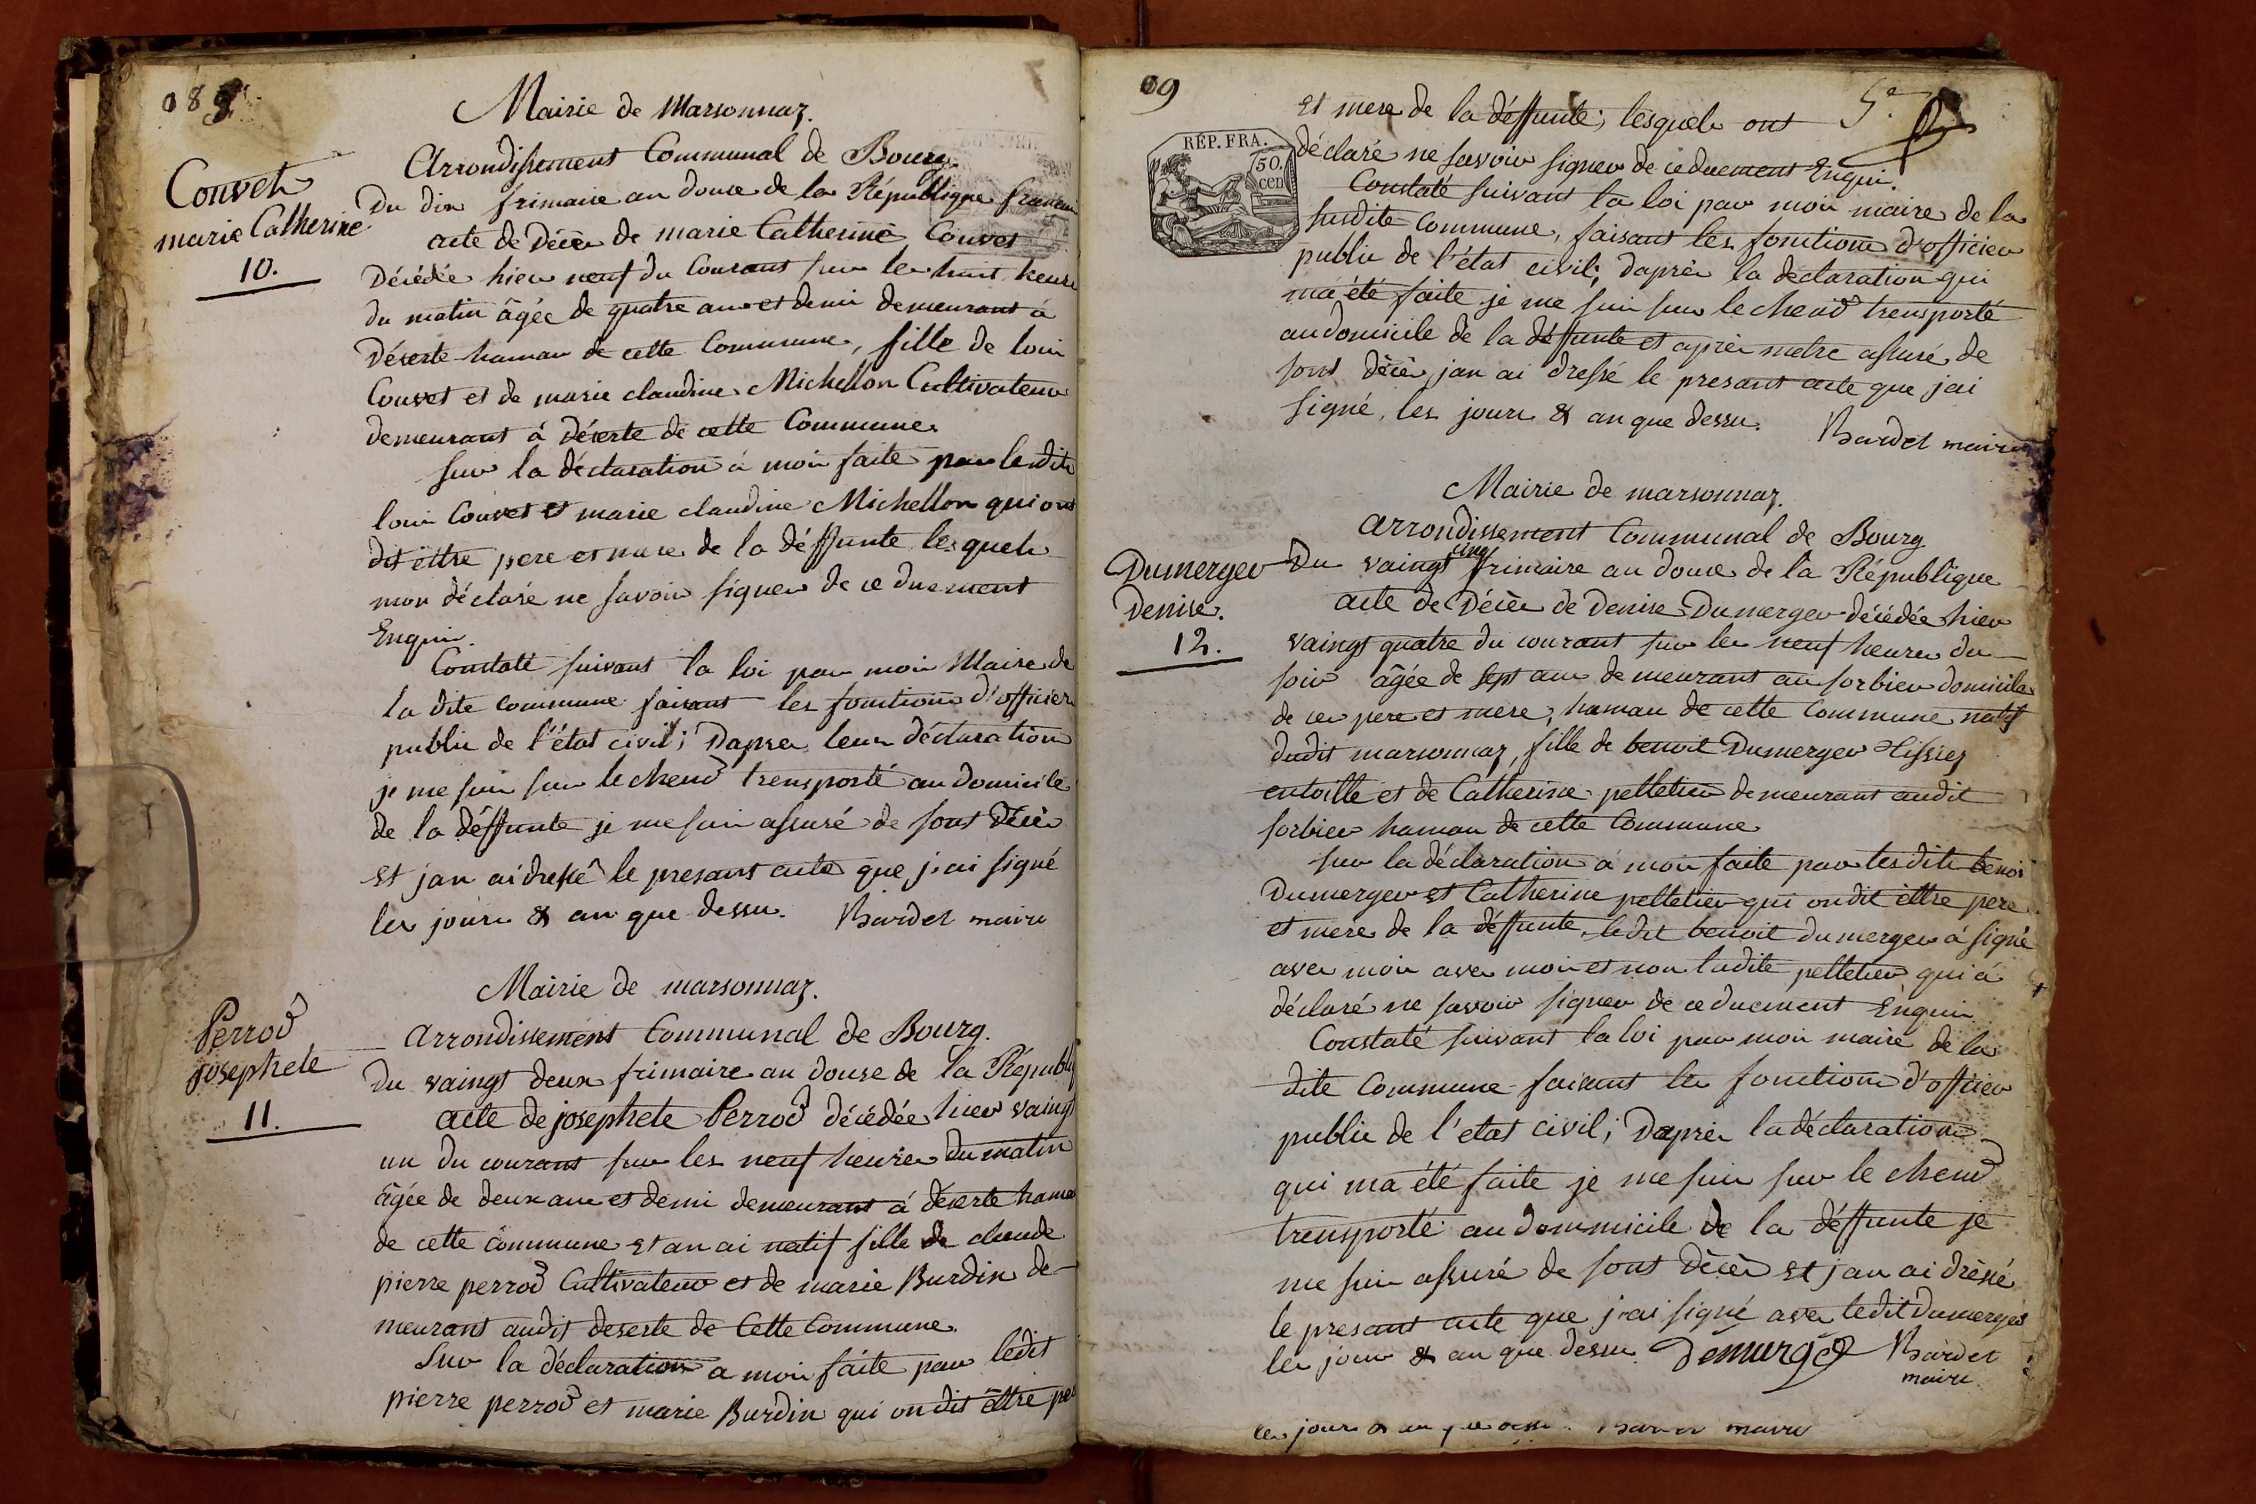 089
Mairie de Marsonnaz.
Arrondissement Communal de Bourg
Couvet
marie Catherine
10.
Du dix frimaire an douze de la République francais
acte de Décès de marie Catherine Couvet
Décédée hier neuf du Courant sur les huit heures
du matin âgée de quatre ans et demi demeurant á
Déserte hamau de cette Commune, fille de louis
Couvet et de marie claudine Michellon Cultivateurs
demeurant á Déserte de cette Commune.
sur la déclaration á moi faite par lesdits
louis Couvet et marie claudine Michellon qui ont
dit être pere et mere de la déffunte lesquels
mon déclaré ne savoir signer de ce duement
Enquis.
Constaté suivant la loi par moi Maire de
la dite commune faisant les fonctions d'officier
public de l'état civil; Daprès leur déclaration
je me suis sur le chend transporté au domicile
de la déffunte je me suis assuré de sont Décès
et jan ai dressé le presant acte que j'ai signé
les jours & an que dessu. Bardet maire
Mairie de marsonnaz.
arrondissement Communal de Bourg.
Perrod
josephete
11.
Du vaingt deux frimaire an douse de la Républiq
acte de josephete Perrod décédée hier vaingt
un du courant sur les neuf heures du matin
âgée de deux ans et demi demeurant á déserte hamau
de cette commune et an ai natif fille de claude
pierre perrod Cultivateur et de marie Burdin de-
meurant audit deserte de Cette Commune.
Sur la déclaration a moi faite par ledit
pierre perrod et marie Burdin qui on dit être per
09
5e
et mere de la déffunte; lesquels ont
déclaré ne savoir signer de ce duement Enquis.
RÉP. FRA.
50.
cen
Constaté suivant la loi par moi maire de la
susdite commune, faisant les fonctions d'officier
public de l'état civil; daprès la déclaration qui
ma été faite je me suis sur le chend transporté
au domicile de la déffunte et après metre assuré de
sont décès jan ai dressé le presant acte que jai
signé, les jours & an que dessu. Bardet maire
Mairie de marsonnaz.
arrondissement Communal de Bourg
Dumerger
Denise.
12.
Du vaingt cinq frimaire an douse de la République
acte de Décès de Denise Dumerger décédée hier
vaingt quatre du courant sur les neuf heures du
soir âgée de sept ans demeurant au sorbier domicile
de ces pere et mere; hamau de cette commune natif
dudit marsonnaz, fille de benoit Dumerger tissier
entoille et de Catherine pelletier demeurant audit
sorbier hamau de cette Commune
sur la déclaration á moi faite par lesdits benoi
Dumerger et Catherine pelletier qui on dit être pere
et mere de la déffunte, ledit benoit dumerger á signé
avec moi avec moi et non ladite pelletier qui á
déclaré ne savoir signer de ce duement Enquis
Constaté suivant la loi par moi maire de la
dite Commune faisant les fonctions d'officier
public de l'etat civil; Daprès la déclaration
qui ma été faite je me suis sur le chend
transporté au dommicile de la déffunte je
me suis assuré de sont décès et jan ai dréssé
le presant acte que j'ai signé avec ledit dumerger
les jour & an que dessu. Demurger Bardet
maire
les jours & an que dessu. Bardet maire